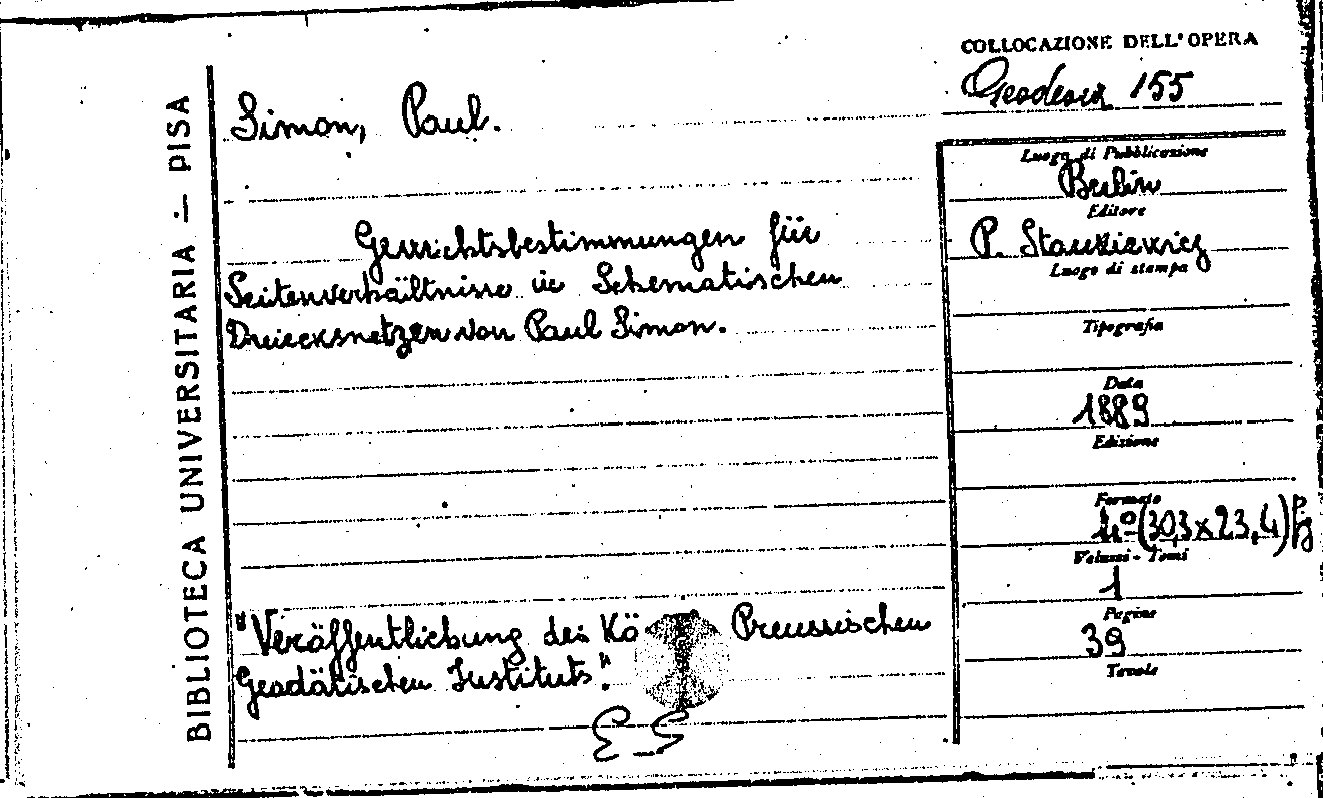 COLLOCAZIONE DELL'OPERA
Geodesia 155
BIBLIOTECA UNIVERSITARIA — PISA
Simon, Paul.
Gewichtsbestimmungen für
Seitenverhältnisse in Schematischen
Dreiecksnetzen von Paul Simon.
"Veröffentlichung des Kö Preussischen
Geodätischen Instituts".
E S
Luogo di Pubblicazione
Berlin
Editore
P. Stankiewicz
Luogo di stampa
Tipografia
Data
1889
Edizione
Formato
4º (30,3 x 23,4)
Volumi - Tomi
1
Pagine
39
Tavole